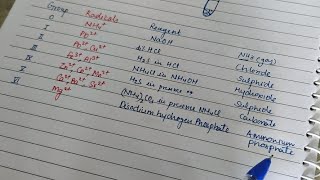 Group Radicals Reagent
0 NH₄⁺ NaOH NH₃ (gas)
I Pb²⁺ dil HCl Chloride
II Pb²⁺ Cu²⁺ H₂S in HCl Sulphide
III Fe³⁺ Al³⁺ NH₄Cl in NH₄OH Hydroxide
IV H₂S in presence Sulphide
V Ba²⁺ Sr²⁺ (NH₄)₂CO₃ in presence NH₄Cl Carbonate
VI Mg²⁺ Disodium hydrogen Phosphate Ammonium
phosphate